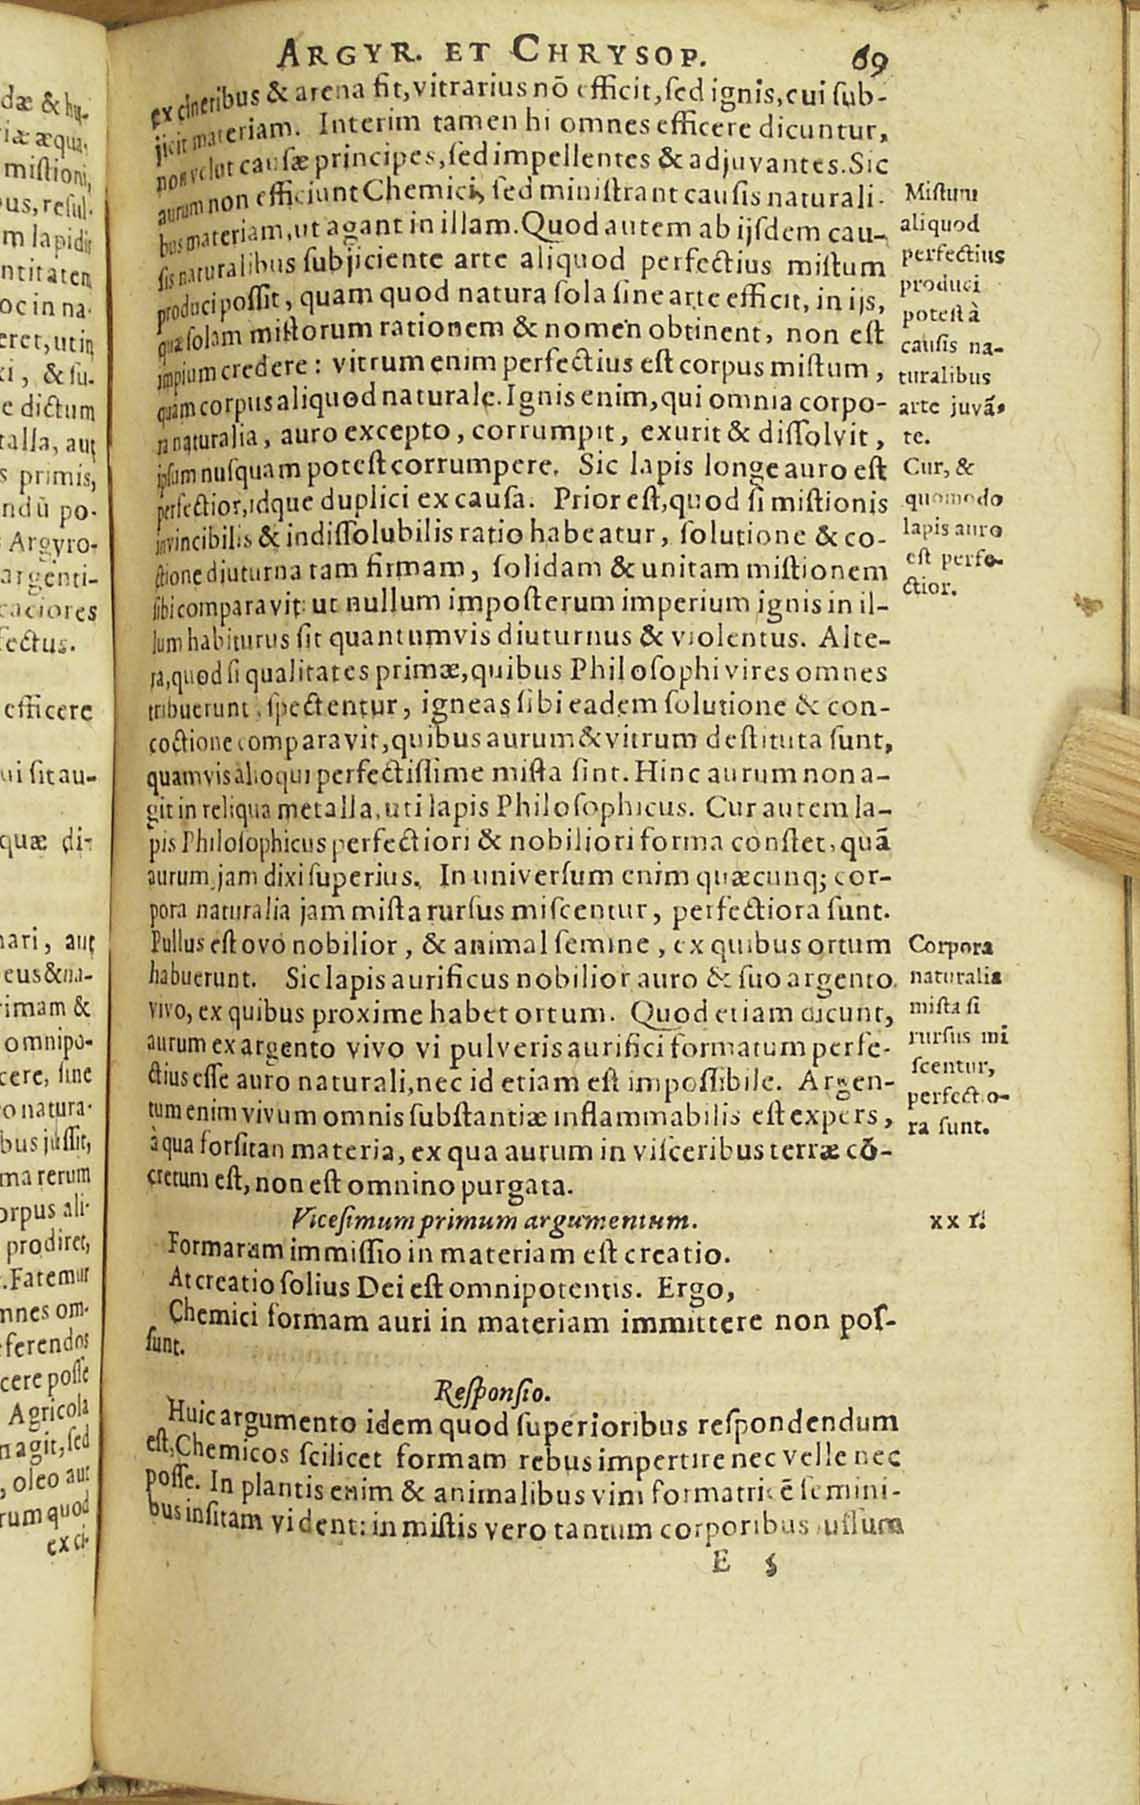 ARGYR. ET CHRYSOP. 69
ex cineribus & arena fit, vitrarius nõ efficit, ſed ignis, cui ſub-
jicit materiam. Interim tamen hi omnes efficere dicuntur,
non velut cauſæ principes, ſed impellentes & adjuvantes. Sic
aurum non efficiunt Chemici, ſed miniſtrant cauſis naturali-
bus materiam, ut agant in illam. Quod autem ab ijſdem cau-
ſis naturalibus ſubjiciente arte aliquod perfectius miſtum
produci poſſit, quam quod natura ſola ſine arte efficit, in ijs,
quæ ſolam miſtorum rationem & nomen obtinent, non eſt
impium credere: vitrum enim perfectius eſt corpus miſtum,
quam corpus aliquod naturale. Ignis enim, qui omnia corpo-
ra naturalia, auro excepto, corrumpit, exurit & diſſolvit,
ipſum nuſquam poteſt corrumpere. Sic lapis longe auro eſt
perfectior, idque duplici ex cauſa. Prior eſt, quod ſi miſtionis
invincibilis & indiſſolubilis ratio habeatur, ſolutione & co-
ctione diuturna tam firmam, ſolidam & unitam miſtionem
ſibi comparavit: ut nullum impoſterum imperium ignis in il-
lum habiturus ſit quantumvis diuturnus & violentus. Alte-
ra, quod ſi qualitates primæ, quibus Philoſophi vires omnes
tribuerunt, ſpectentur, igneas ſibi eadem ſolutione & con-
coctione comparavit, quibus aurum & vitrum deſtituta ſunt,
quamvis alioqui perfectiſſime miſta ſint. Hinc aurum non a-
git in reliqua metalla, uti lapis Philoſophicus. Cur autem la-
pis Philoſophicus perfectiori & nobiliori forma conſtet, quã
aurum, jam dixi ſuperius. In univerſum enim quæcunq; cor-
pora naturalia jam miſta rurſus miſcentur, perfectiora ſunt.
Pullus eſt ovo nobilior, & animal ſemine, ex quibus ortum
habuerunt. Sic lapis aurificus nobilior auro & ſuo argento
vivo, ex quibus proxime habet ortum. Quod etiam dicunt,
aurum ex argento vivo vi pulveris aurifici formatum perfe-
ctius eſſe auro naturali, nec id etiam eſt impoſſibile. Argen-
tum enim vivum omnis ſubſtantiæ inflammabilis eſt expers,
à qua forſitan materia, ex qua aurum in viſceribus terræ cõ-
cretum eſt, non eſt omnino purgata.
Viceſimum primum argumentum.
Formarum immiſſio in materiam eſt creatio.
At creatio ſolius Dei eſt omnipotentis. Ergo,
Chemici formam auri in materiam immittere non poſ-
ſunt.
Reſponſio.
Huic argumento idem quod ſuperioribus reſpondendum
eſt, Chemicos ſcilicet formam rebus impertire nec velle nec
poſſe. In plantis enim & animalibus vim formatricẽ ſemini-
bus inſitam vident: in miſtis vero tantum corporibus juſſum
E 5
Miſtum
aliquod
perfectius
produci
poteſt à
cauſis na-
turalibus
arte juvã-
te.
Cur, &
quomodo
lapis auro
eſt perfe-
ctior.
Corpora
naturalia
miſta ſi
rurſus mi
ſcentur,
perfectio-
ra ſunt.
XXI.
dæ & hu-
riæ æqua,
miſtioni,
ous, reſul-
m lapidis
ntitatem
oc in na-
eret, ut in
xi, & ſu-
e dictum
talla, aut
s primis,
ndũ po-
Argyro-
argenti-
caciores
fectus.
efficere
ui ſit au-
quæ di-
nari, aut
eus & na-
rimam &
omnipo-
cere, ſine
o natura-
bus juſſit,
ma rerum
orpus ali-
prodiret,
. Fatemur
mnes om-
eferendos
cere poſſe
Agricola
n agit, ſed
, oleo aut
rum quod
ex ci-